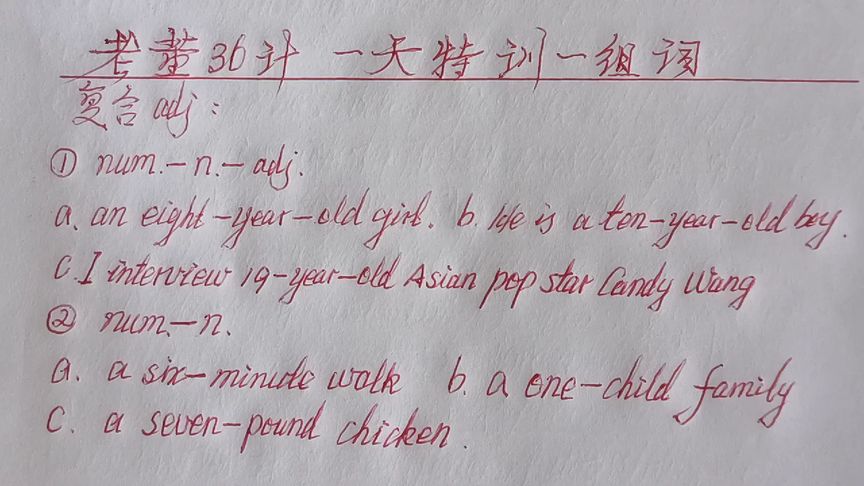 老董36计 一天特训一组词
复合adj:
① num.-n.-adj.
a. an eight-year-old girl. b. He is a ten-year-old boy.
C. I interview 19-year-old Asian pop star Candy Wang
② num.-n.
a. a six-minute walk b. a one-child family
C. a seven-pound chicken.